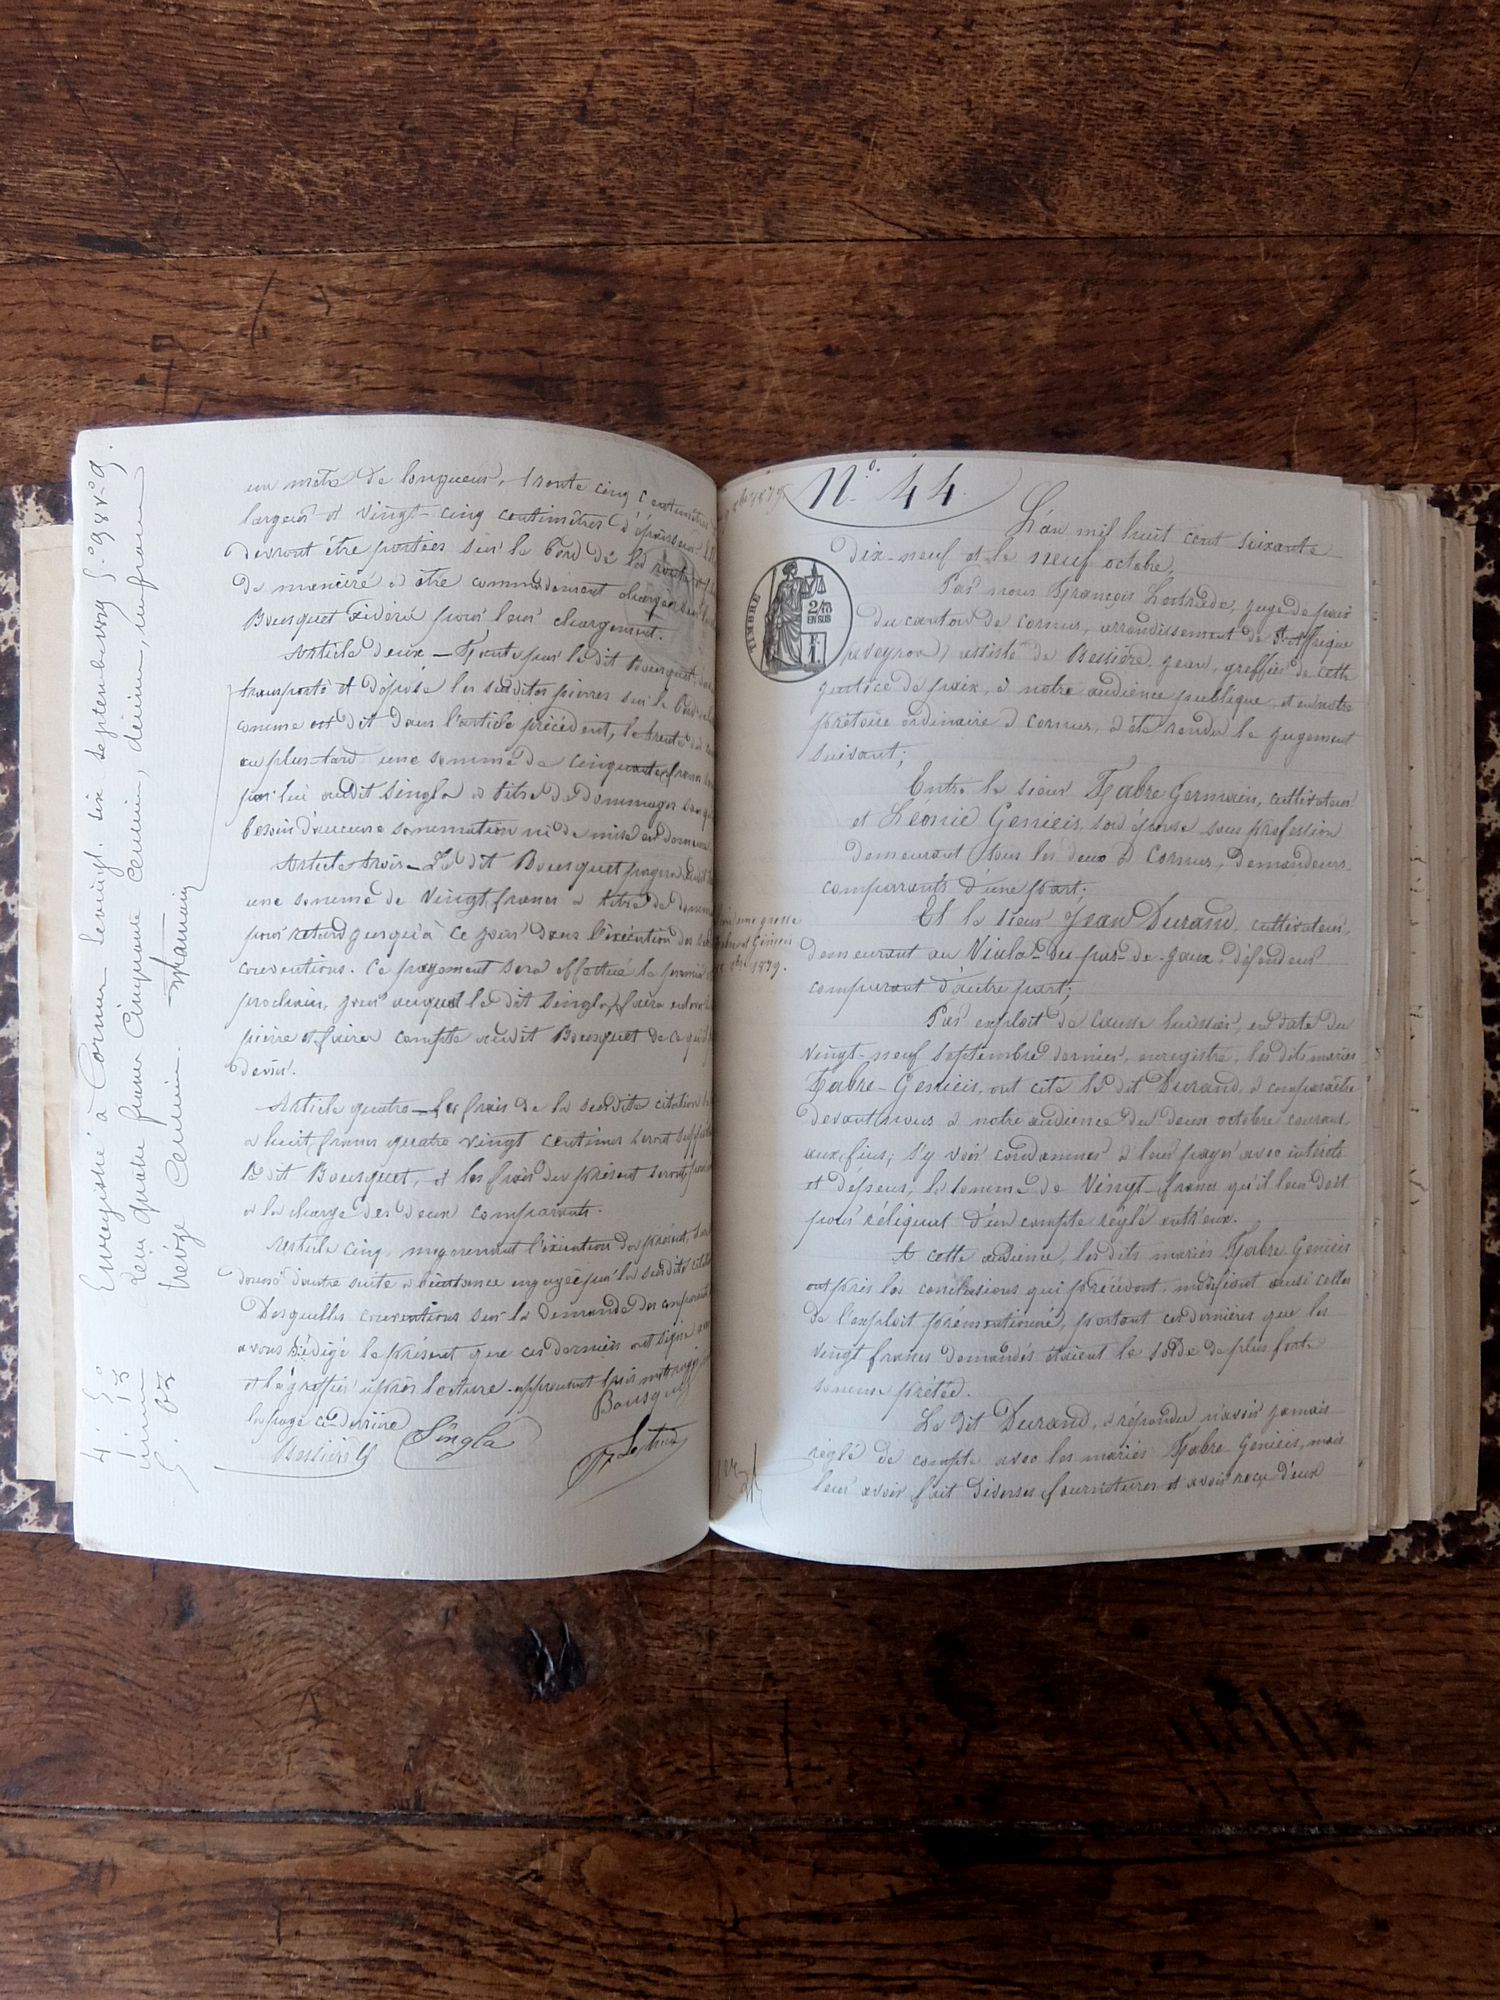 un mètre de longueur, trente cinq centimètres
largeur et vingt-cinq centimètres d'épaisseur
devront être portées sur le bord de la route
de manière à être commodément chargées
Bousquet fédéré pour leur chargement.
Article deux — Faute par le dit Bousquet
transporté et déposé les susdites pierres sur le bord
comme est dit dans l'article précédent, le trente
au plus tard une somme de cinquante francs
par lui audit Singla à titre de dommages sans
besoin d'aucune sommation ni de mise en demeure
Article trois — Le dit Bousquet payera
une somme de vingt francs à titre de
pour retard jusqu'à ce jour dans l'exécution des
conventions. Ce payement sera effectué le premier
prochain, jour auquel le dit Singla
pierre et faire compte audit Bousquet de ce qu'il
devra.
Article quatre — Les frais de la susdite citation
à huit francs quatre vingt centimes seront
le dit Bousquet, et les frais du présent seront
à la charge des deux comparants.
Article cinq moyennant l'exécution du présent,
donné d'autre suite à l'instance engagée par la susdite
Desquelles conventions sur la demande des comparants
avons rédigé le présent que ces derniers ont signé
et le greffier après lecture. approuvant trois mots rayés
la page ci-derrière
Bousquet
Singla
Bessière
Enregistré à Cornus le vingt six septembre 1879 f° 98 v° c 9.
reçu quatre francs cinquante centimes, décimes, un franc
treize centimes.
N° 44
L'an mil huit cent soixante
dix-neuf et le neuf octobre,
TIMBRE
2/10 EN SUS
F. 1.
Par nous François Lestrade, juge de paix
du canton de Cornus, arrondissement de St Affrique
(Aveyron) assisté de Bessière Jean, greffier de cette
justice de paix, à notre audience publique, et en notre
prétoire ordinaire à Cornus, a été rendu le jugement
suivant;
Entre le sieur Fabre Germain, cultivateur
et Léonie Genieis, son épouse sans profession
demeurant tous les deux à Cornus, demandeurs
comparants d'une part;
Et le sieur Jean Durand, cultivateur,
demeurant au Viala-du-pas-de-jaux, défendeur
comparant d'autre part;
une grosse
Genieis
1879.
Par exploit de Causse huissier, en date du
vingt-neuf septembre dernier, enregistré, les dits mariés
Fabre-Genieis, ont cité le dit Durand, à comparaître
devant nous à notre audience du deux octobre courant,
aux fins, s'y voir condamner à leur payer avec intérêts
et dépens, la somme de vingt francs qu'il leur doit
pour reliquat d'un compte réglé entr'eux.
A cette audience, les dits mariés Fabre Genieis
ont pris les conclusions qui précèdent, modifiant ainsi celles
de l'exploit prémentionné, portant ces dernières que les
vingt francs demandés étaient le solde de plus forte
somme prêtée.
Le dit Durand, a répondu n'avoir jamais
réglé de compte avec les mariés Fabre Genieis, mais
leur avoir fait diverses fournitures et avoir reçu d'eux